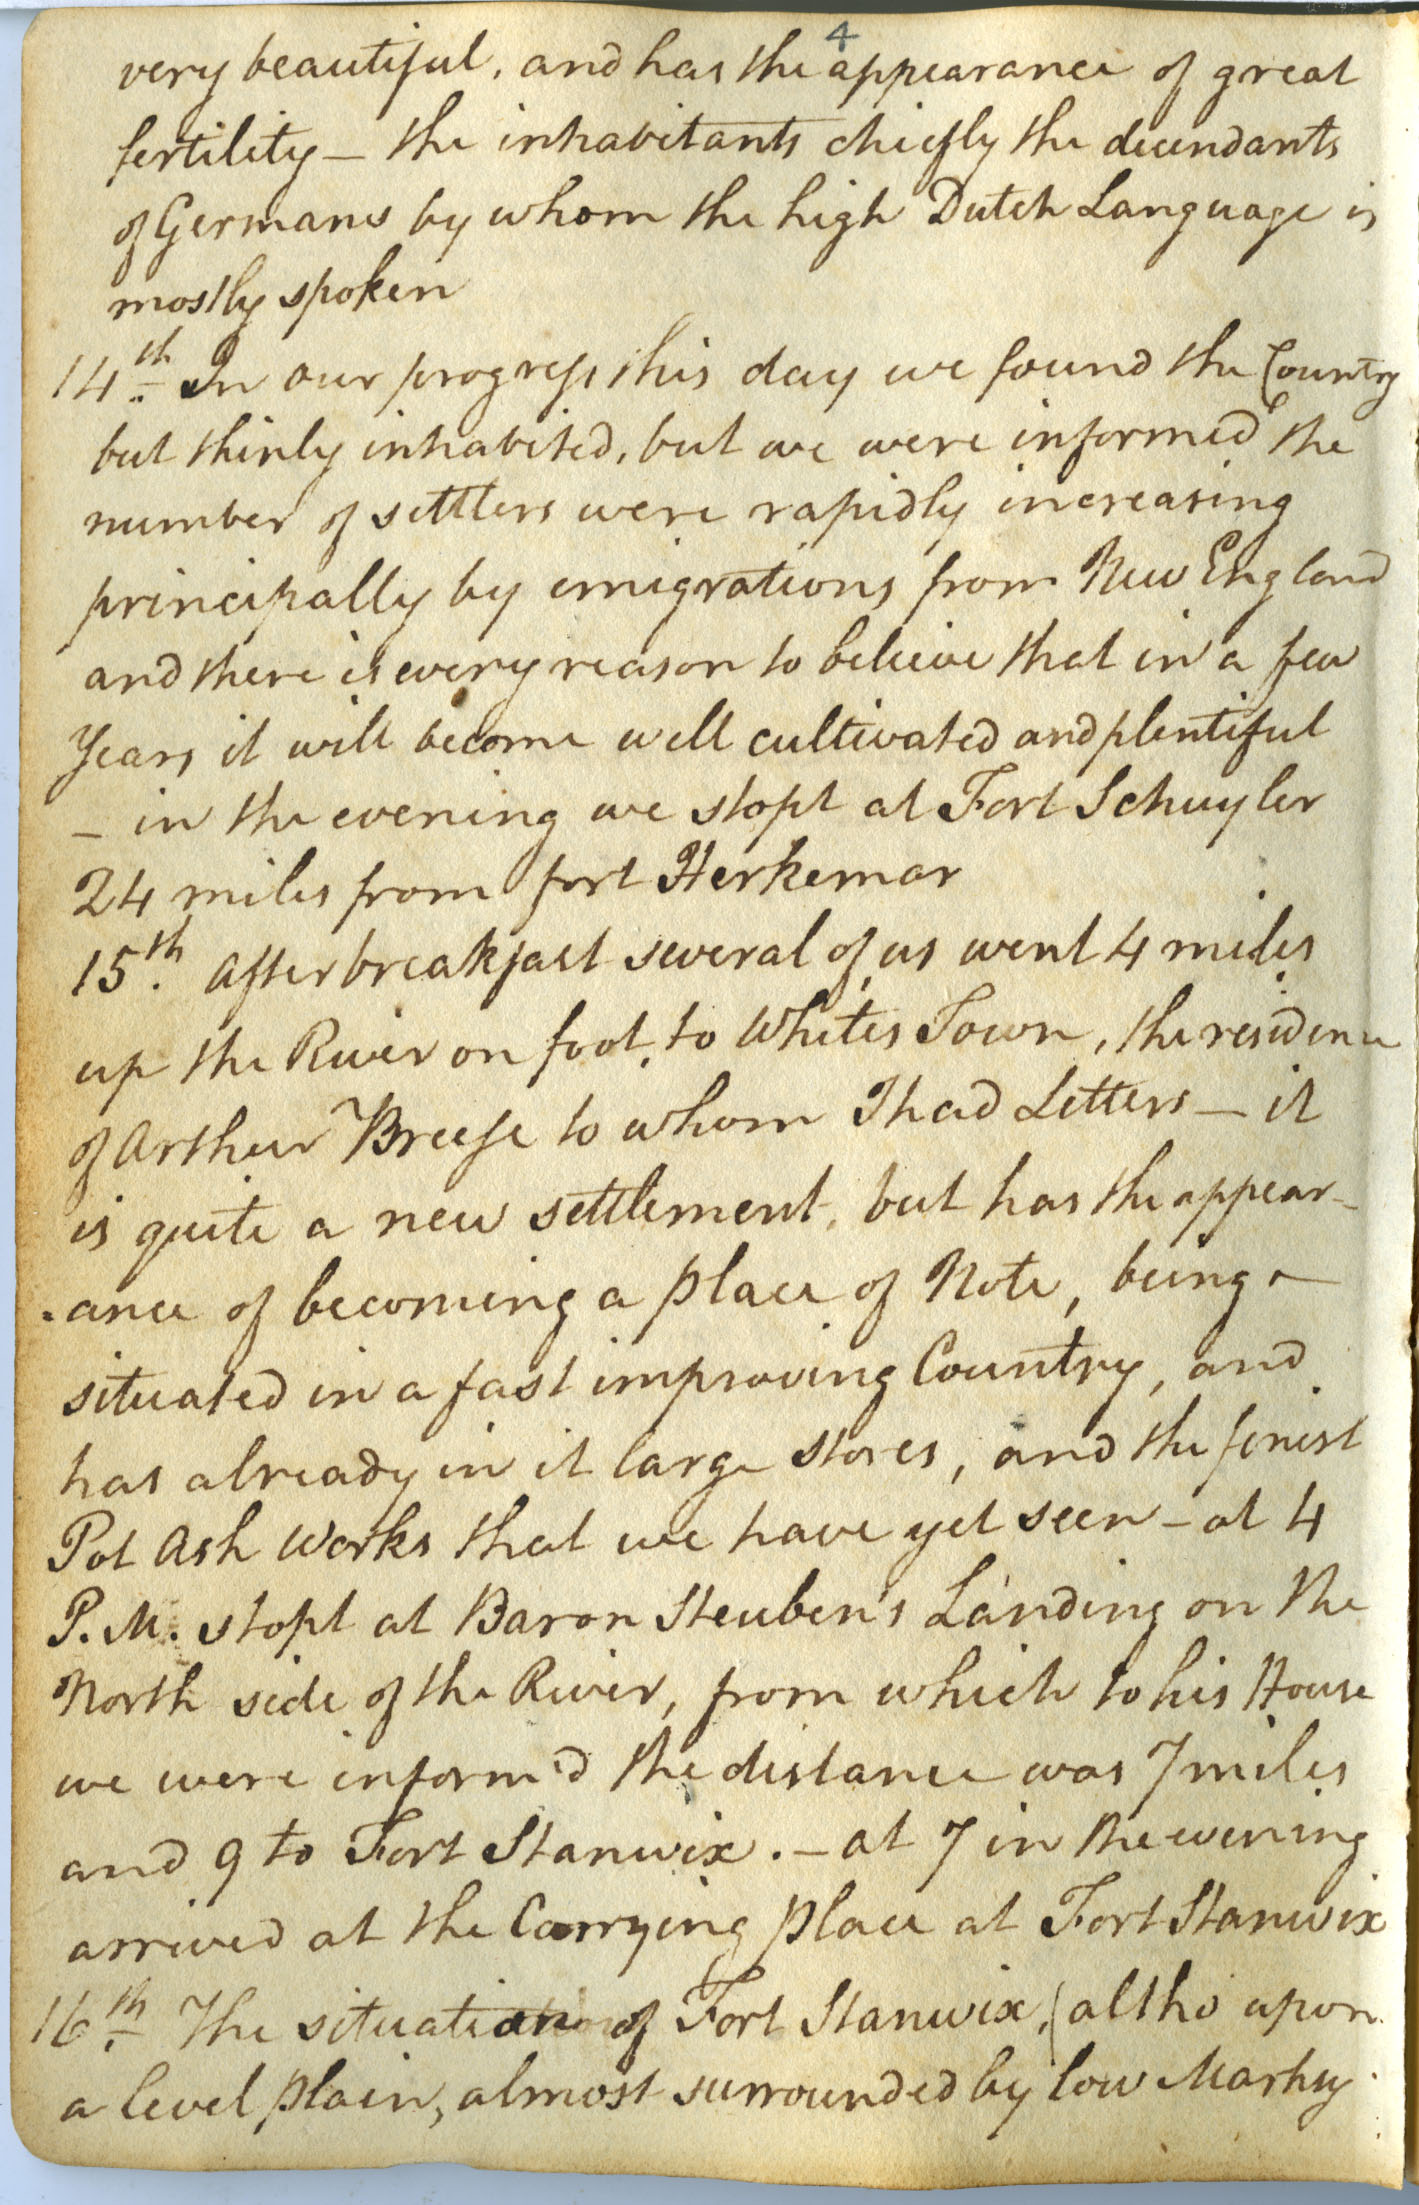 4
very beautiful, and has the appearance of great
fertility – the inhabitants chiefly the decendants
of Germans by whom the high Dutch Language is
mostly spoken
14th In our progress this day we found the Country
but thinly inhabited, but we were informed the
number of settlers were rapidly increasing
principally by emigrations from New England
and there is every reason to believe that in a few
Years it will become well cultivated and plentiful
– in the evening we stopt at Fort Schuyler
24 miles from fort Herkemar
15th. after breakfast several of us went 4 miles
up the River on foot, to Whites Town, the residence
of Arthur Breese to whom I had Letters – it
is quite a new settlement, but has the appear-
-ance of becoming a place of Note, being
situated in a fast improving Country, and
has already in it large stores, and the finest
Pot Ash Works that we have yet seen – at 4
P.M. stopt at Baron Steuben's Landing on the
North side of the River, from which to his House
we were inform'd the distance was 7 miles
and 9 to Fort Stanwix. – at 7 in the evening
arrived at the Carrying place at Fort Stanwix
16th. The situation of Fort Stanwix, (altho' upon
a level plain, almost surrounded by low Marshy